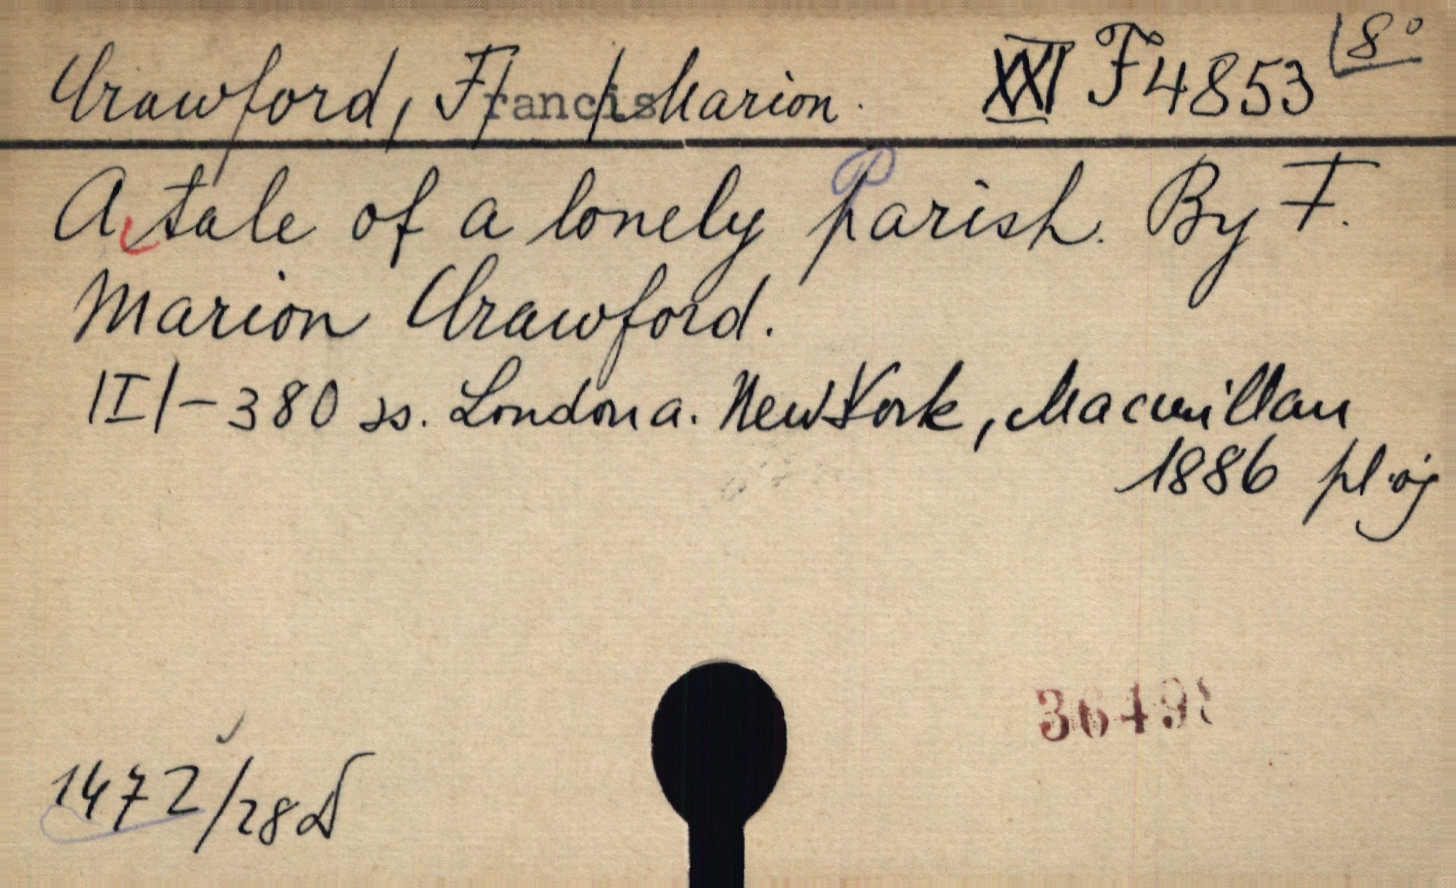 Crawford, F/rancis/ Marion. XVI F 4853 8°
A tale of a lonely Parish. By F.
Marion Crawford.
|I|-380 ss. London a. New York, Macmillan
1886
1472/28